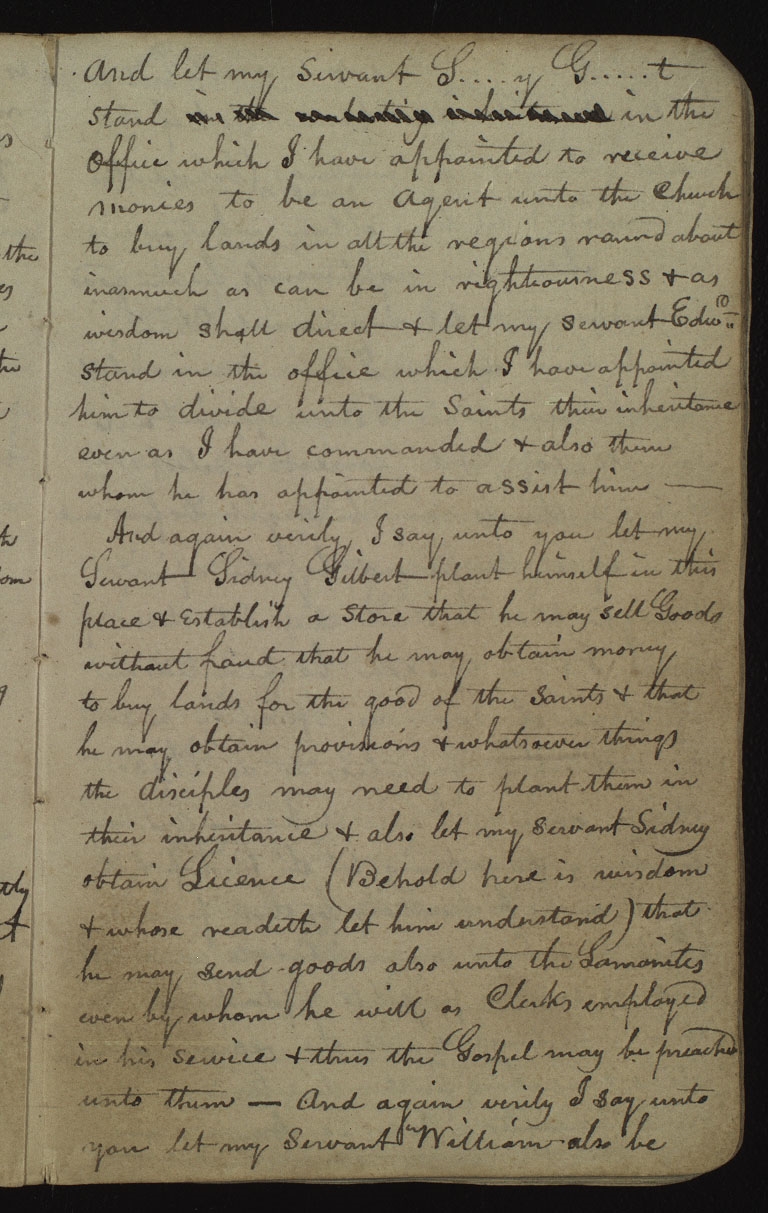 And let my Servant S....y G.....t
stand in the
Office which I have appointed to receive
monies to be an Agent unto the Church
to buy lands in all the regions round about
inasmuch as can be in righteousness & as
wisdom shall direct & let my servant Edwd
stand in the office which I have appointed
him to divide unto the Saints their inheritance
even as I have commanded & also them
whom he has appointed to assist him —
And again verily I say unto you let my
Servant Sidney Gilbert plant himself in this
place & Establish a Store that he may sell Goods
without fraud that he may obtain money
to buy lands for the good of the Saints & that
he may obtain provisions & whatsoever things
the disciples may need to plant them in
their inheritance & also let my servant Sidney
obtain Licence (Behold here is wisdom
& whose readeth let him understand) that
he may send goods also unto the Lamanites
even by whom he will as Clerks employed
in his service & thus the Gospel may be preached
unto them — And again verily I say unto
you let my Servant William also be
the
es
the
om
tly